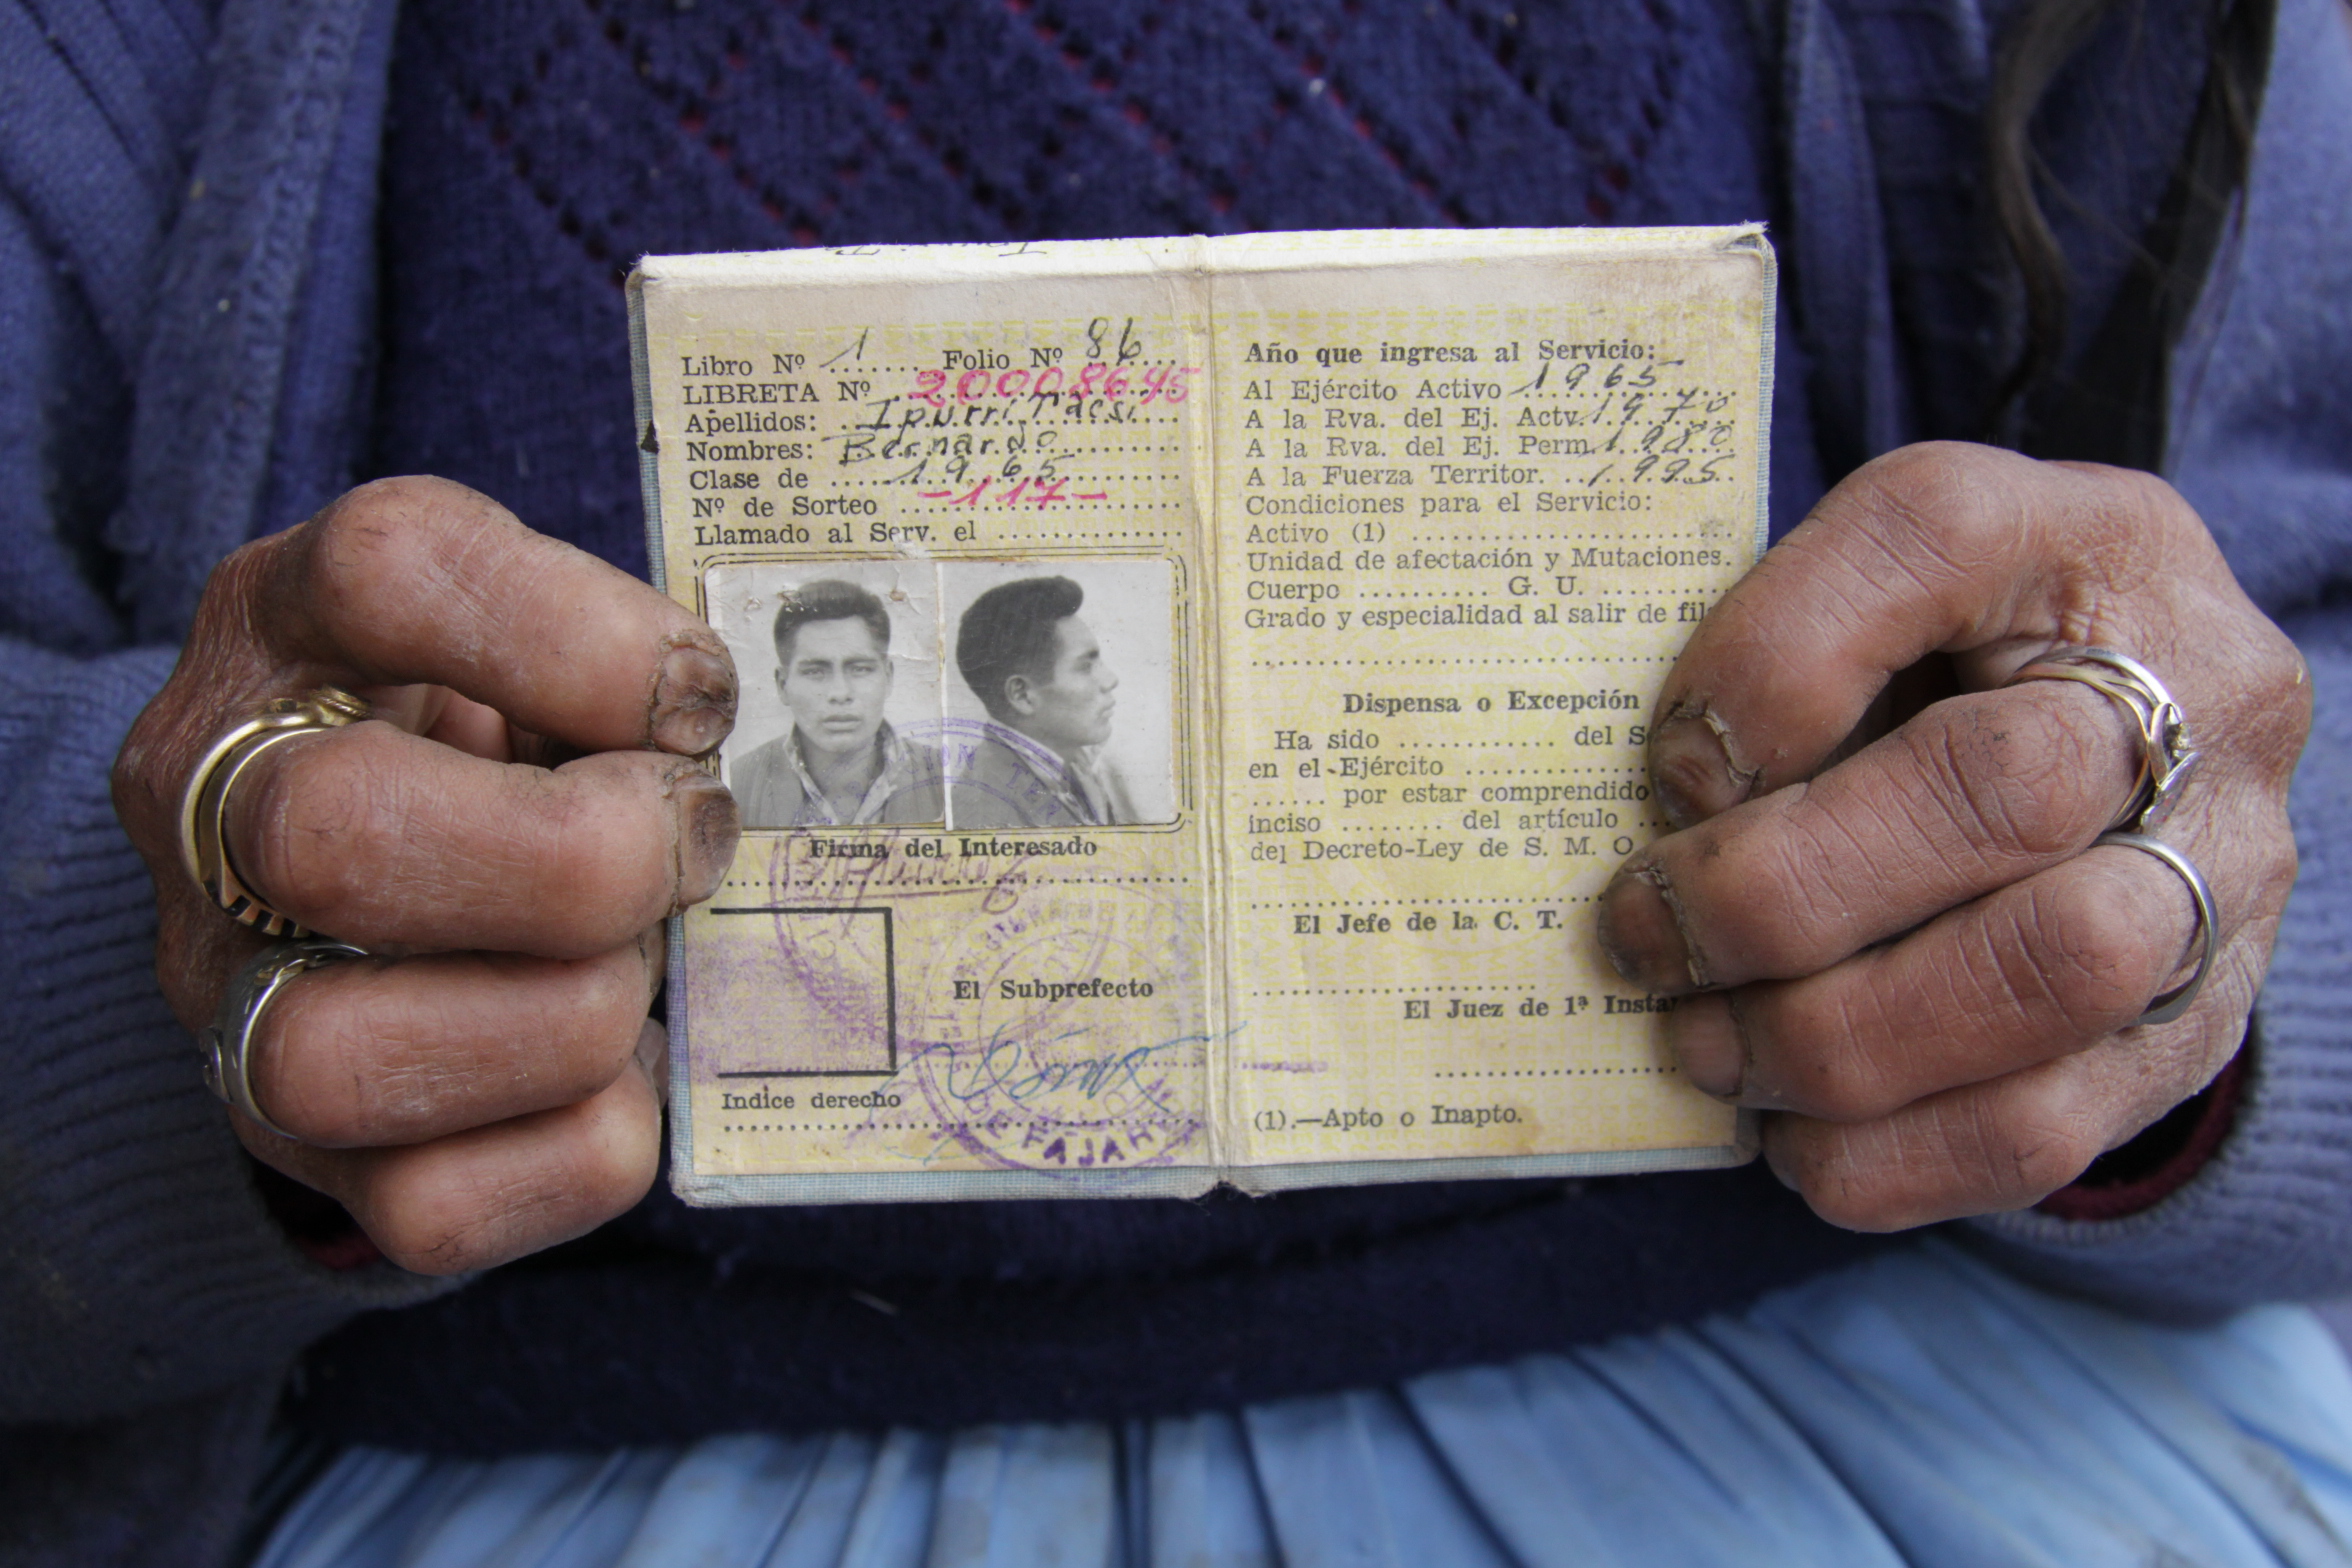 Libro Nº 1 Folio Nº 86
LIBRETA Nº 20008645
Apellidos: Ipurri Tacsi
Nombres: Bernardo
Clase de 1965
Nº de Sorteo -117-
Llamado al Serv. el
Firma del Interesado
El Subprefecto
Indice derecho
DE FAJAR
Año que ingresa al Servicio:
Al Ejército Activo 1965
A la Rva. del Ej. Actv. 1970
A la Rva. del Ej. Perm. 1980
A la Fuerza Territor. 1995
Condiciones para el Servicio:
Activo (1)
Unidad de afectación y Mutaciones.
Cuerpo G. U.
Grado y especialidad al salir de fil
Dispensa o Excepción
Ha sido del S
en el Ejército
por estar comprendido
inciso del artículo
del Decreto-Ley de S. M. O
El Jefe de la C. T.
El Juez de 1ª Insta
(1).—Apto o Inapto.